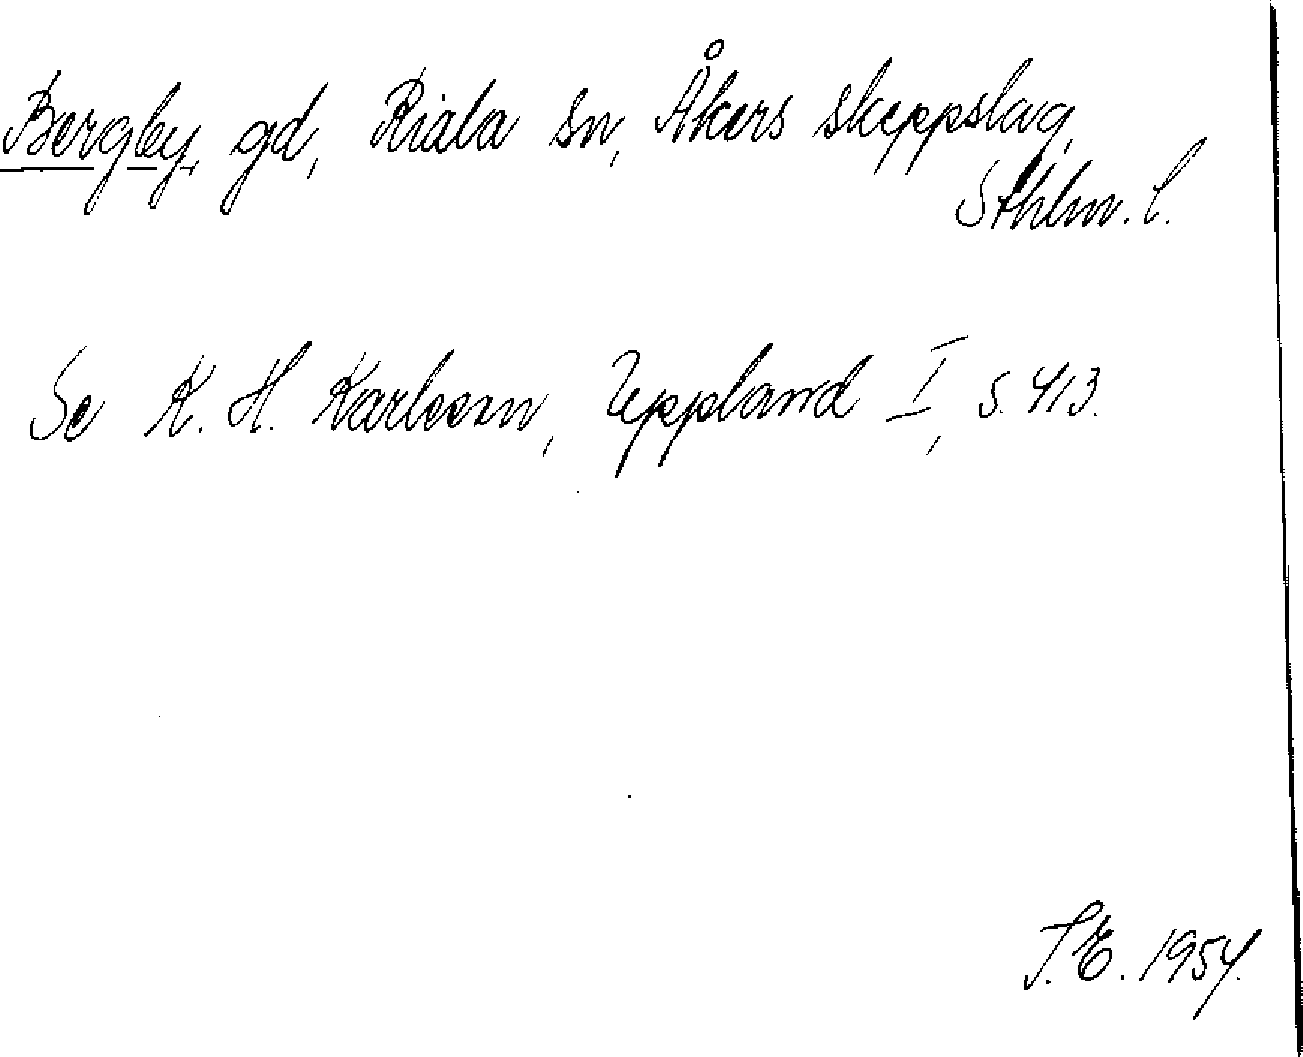 Bergby, gd, Riala sn, Åkers skeppslag,
Sthlm. l.
Se K. H. Karlsson, Uppland I, s. 413.
S. E. 1954.